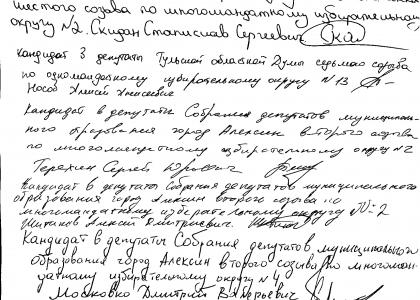 шестого созыва по многомандатному избирательному
округу №2. Скидан Станислав Сергеевич
Кандидат в депутаты Тульской областной Думы седьмого созыва
по одномандатному избирательному округу №13
Носов Алексей Алексеевич
Кандидат в депутаты Собрания депутатов муниципаль-
ного образования город Алексин второго созыва
по многомандатному избирательному округу №2
Терехин Сергей Юрьевич
Кандидат в депутаты Собрания депутатов муниципального
образования город Алексин второго созыва по
многомандатному избирательному округу №2
Алексей Дмитриевич
Кандидат в депутаты Собрания депутатов муниципального
образования город Алексин второго созыва по многоман-
датному избирательному округу №4
Московко Дмитрий Валерьевич